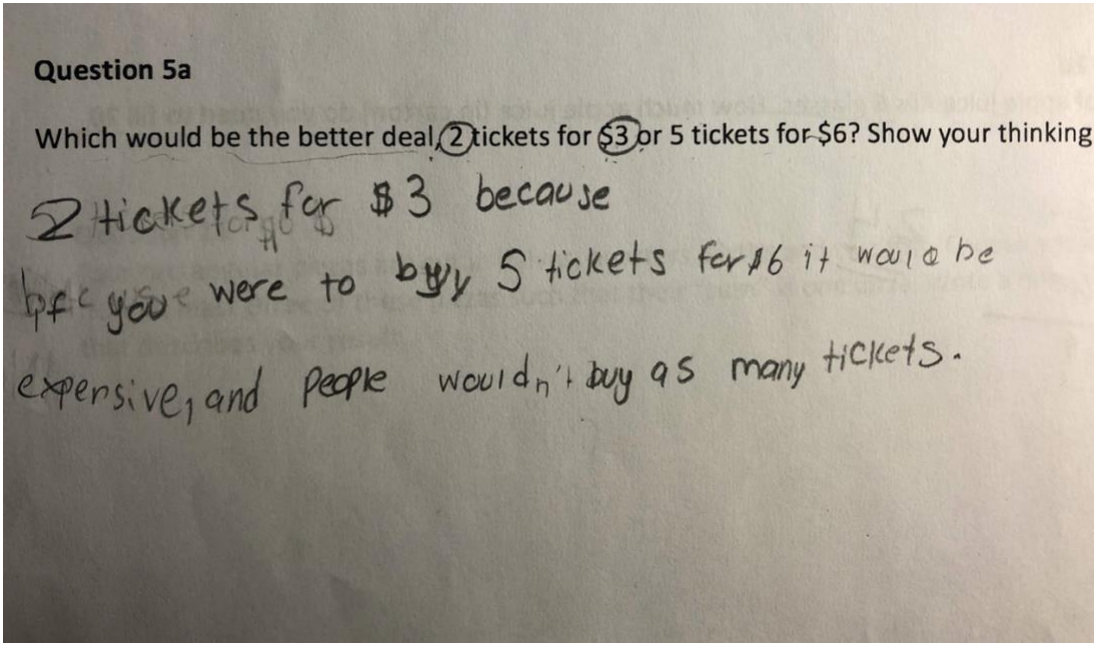 Question 5a
Which would be the better deal, 2 tickets for $3 or 5 tickets for $6? Show your thinking
2 tickets for $3 because
if you were to buy 5 tickets for $6 it would be
expensive, and people wouldn't buy as many tickets.